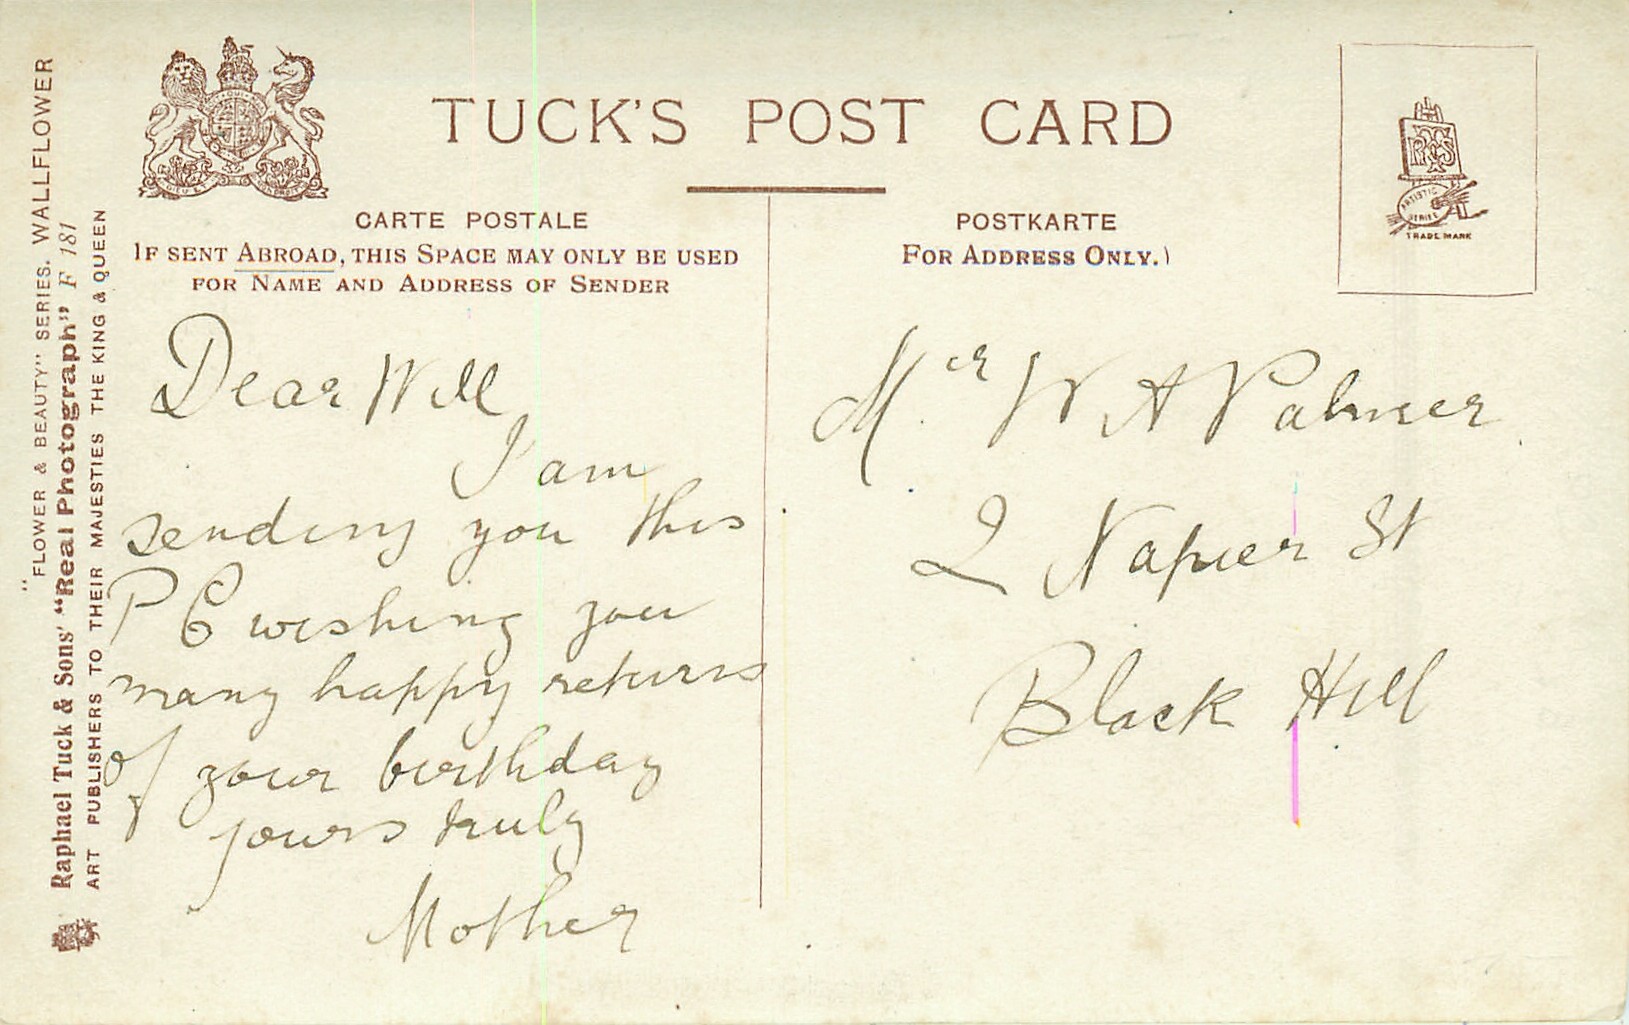 TUCK'S POST CARD
CARTE POSTALE
IF SENT ABROAD, THIS SPACE MAY ONLY BE USED
FOR NAME AND ADDRESS OF SENDER
POSTKARTE
FOR ADDRESS ONLY.)
ARTISTIC
SERIES
TRADE MARK
"FLOWER & BEAUTY" SERIES. WALLFLOWER
Raphael Tuck & Sons' "Real Photograph" F 181
ART PUBLISHERS TO THEIR MAJESTIES THE KING & QUEEN
Dear Will
I am
sending you this
P C wishing you
many happy returns
of your birthday
yours truly
Mother
Mr W A Palmer
2 Napier St
Black Hill